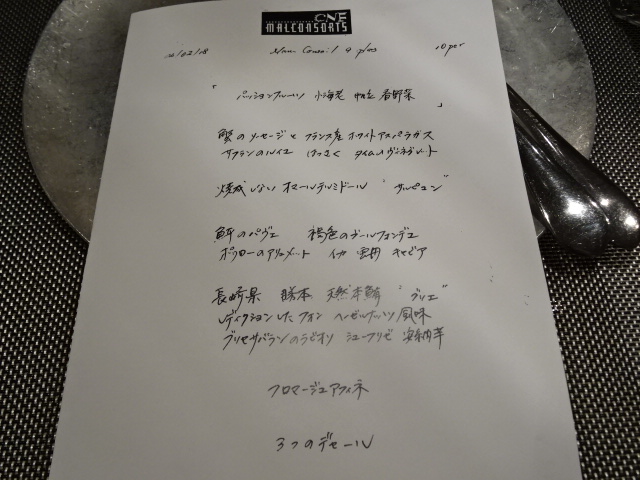 CNE
MALCONSORTS
Menu Conseil 9 plats 10 per
「 パッションフルーツ 小海老 帆立 春野菜 」
蟹のソーセージとフランス産ホワイトアスパラガス
サフランのルイユ はっさく タイムのヴィネグレット
焼成しない オマールテルミドール "サルピコン"
鮮のパヴェ 褐色のブールフォンデュ
ポワローのアリュメット イカ 雲丹 キャビア
長崎県 勝本 天然本鮪 "グリエ"
レディクションしたフォン ヘーゼルナッツ風味
ブリヤサバランのラビオリ シューフリゼ 安納芋
フロマージュアフィネ
3つのデセール